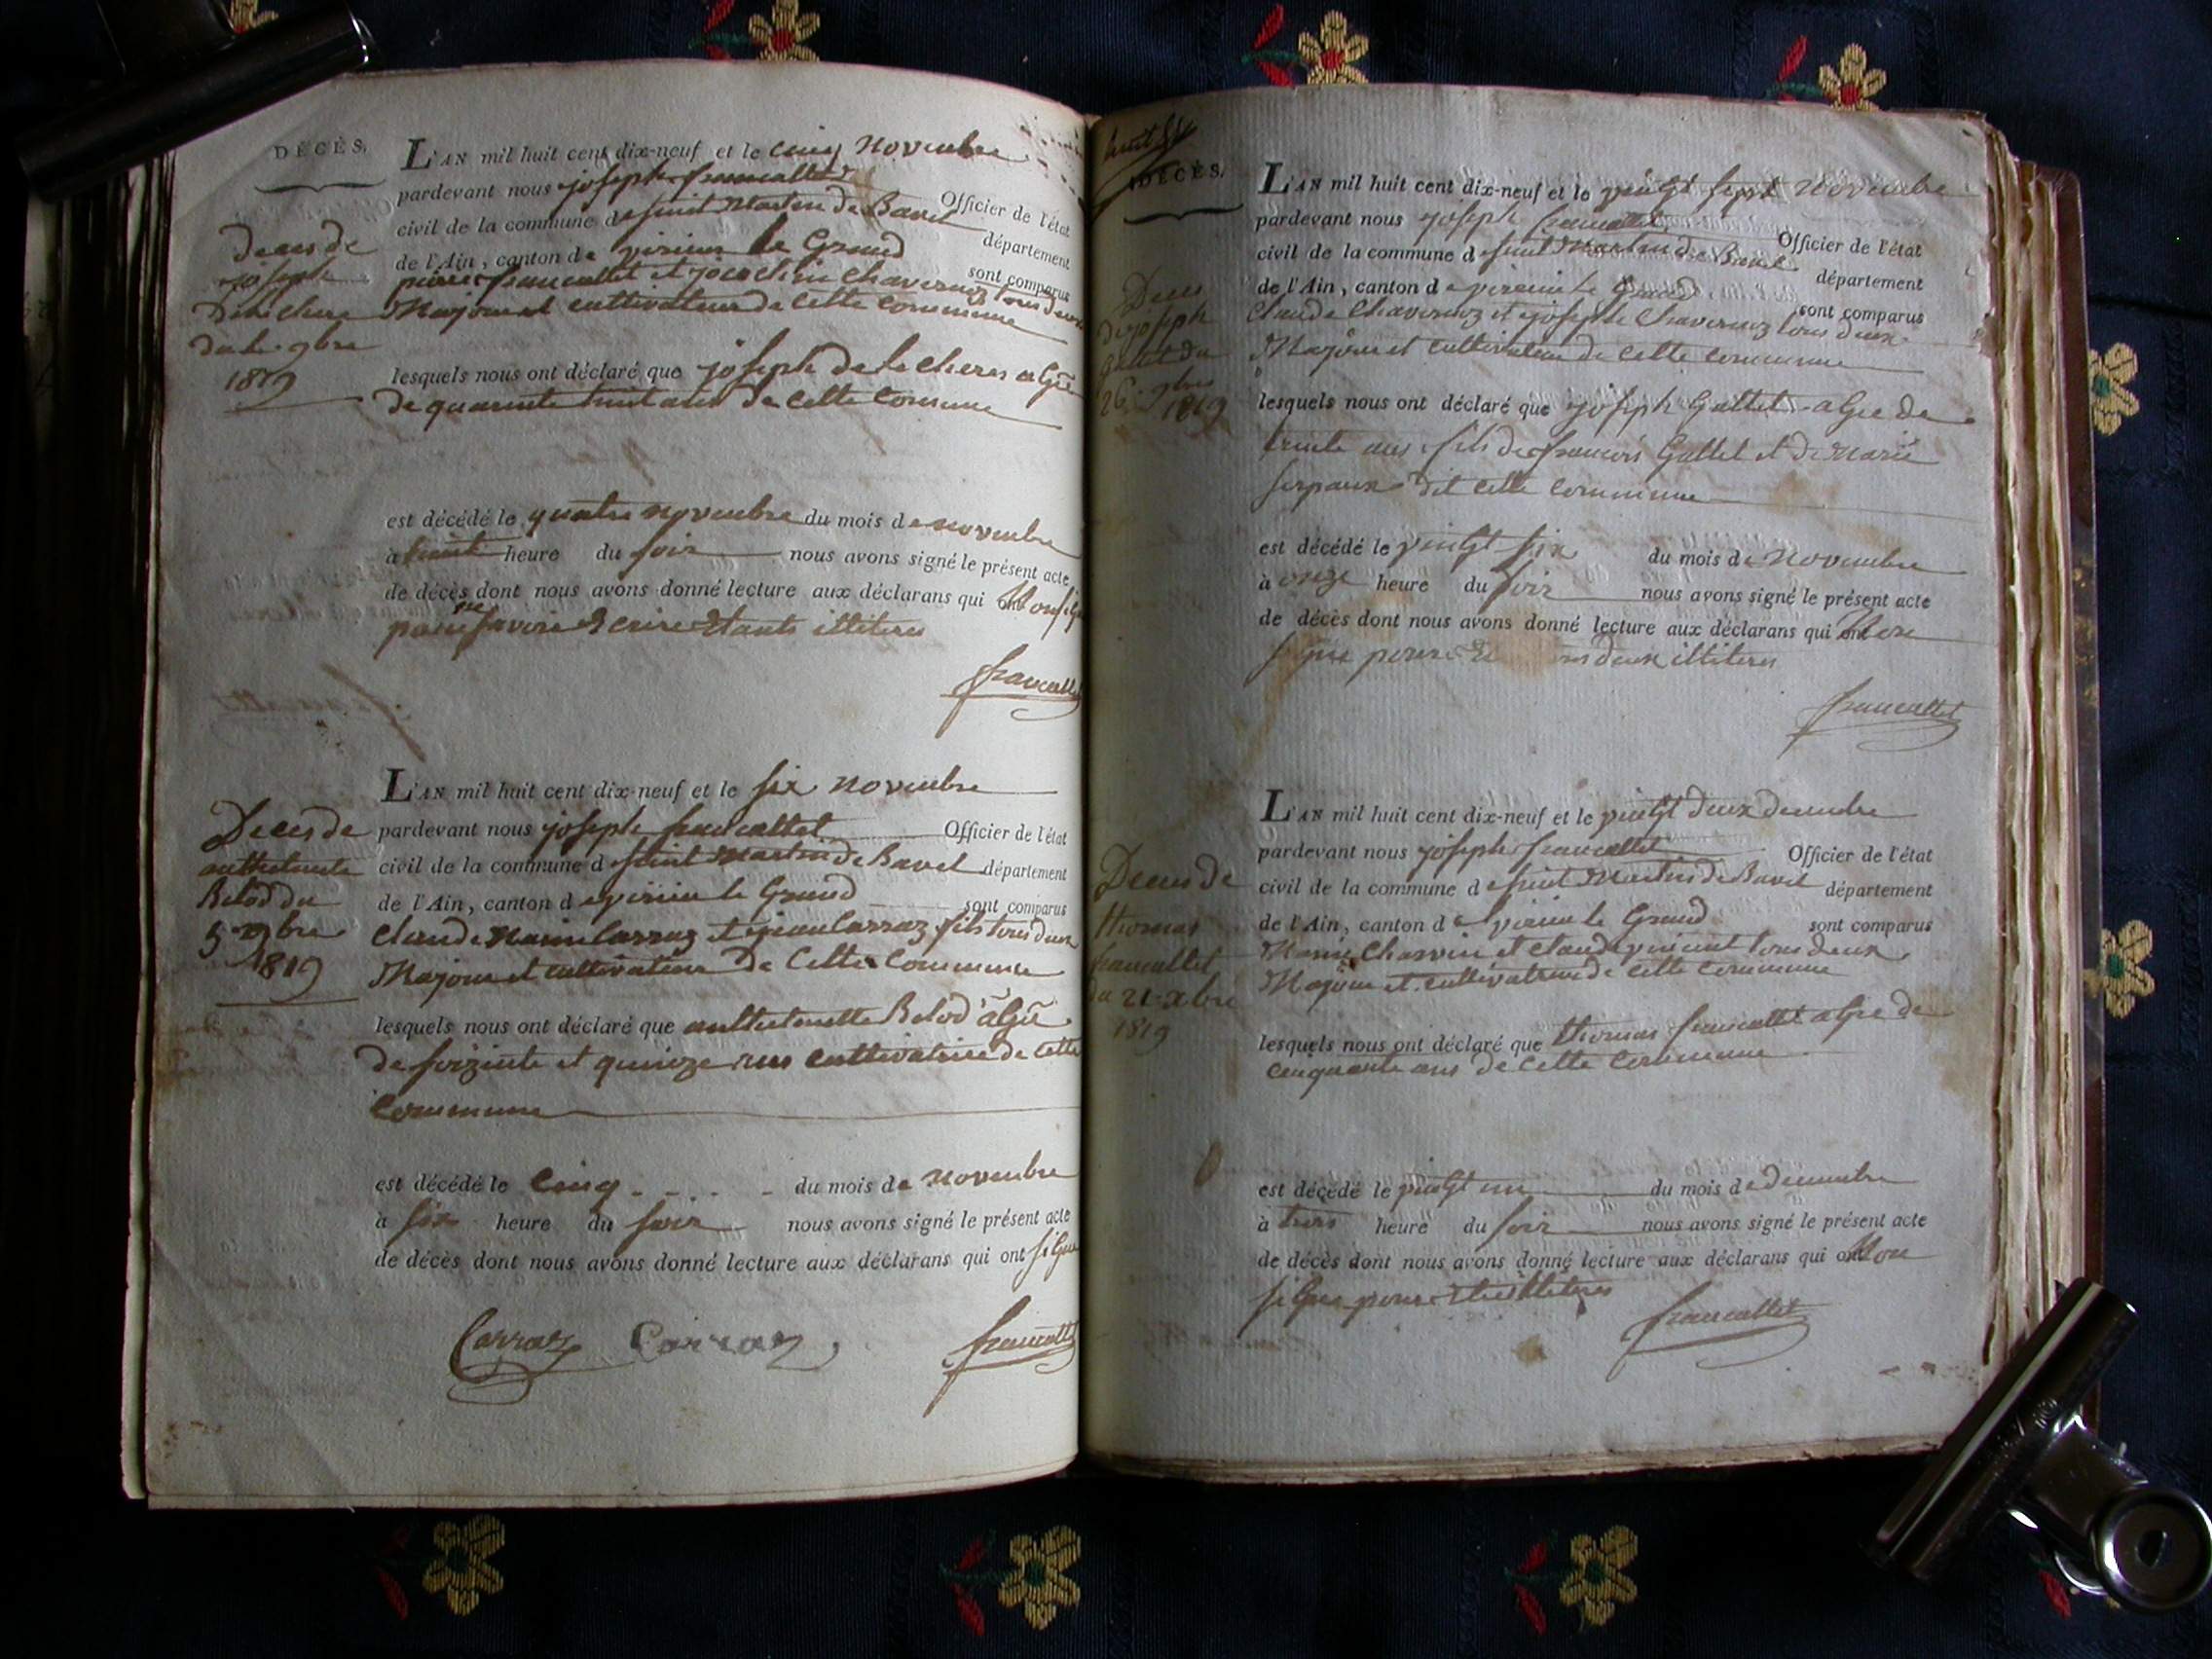 DÉCÈS.
L'AN mil huit cent dix-neuf et le cinq Novembre
pardevant nous joseph francallet Officier de l'état
civil de la commune de saint Martin de Bavel département
de l'Ain, canton de virieu le Grand sont comparus
pierre francallet et joachin Chavernoz tous deux
Majour et cultivateur de Cette commune
Deces de
joseph
1819
lesquels nous ont déclaré que joseph de
de quarente huit ans de Cette Commune
est décédé le quatre novembre du mois de novembre
à huit heure du soir nous avons signé le présent acte
de décès dont nous avons donné lecture aux déclarans qui ont Non
illiteres
francallet
L'AN mil huit cent dix-neuf et le six novembre
pardevant nous joseph francallet Officier de l'état
civil de la commune de saint Martin de Bavel département
de l'Ain, canton de virieu le Grand sont comparus
Claude Marin Carraz et jean Carraz fils tous deux
Majour et cultivateur de Cette Commune
Deces de
Belod du
5 9bre
1819
lesquels nous ont déclaré que Belod alGée
de soizente et quinze ans cultivatrice de Cette
Commune
est décédé le Cinq du mois de novembre
à six heure du soir nous avons signé le présent acte
de décès dont nous avons donné lecture aux déclarans qui ont
Carraz Carraz francallet
DÉCÈS.
L'AN mil huit cent dix-neuf et le vingt sept Novembre
pardevant nous joseph francallet Officier de l'état
civil de la commune de saint Martin de Bavel département
de l'Ain, canton de virieu le Grand sont comparus
Claude Chavernoz et joseph Chavernoz tous deux
Majour et cultivateur de Cette commune
Deces
de joseph
Gallet du
26 9bre
1819
lesquels nous ont déclaré que joseph Gallet alGee de
trente ans fils de francois Gallet et de Marie
serpaux dit cette commune
est décédé le vingt six du mois de Novembre
à onze heure du soir nous avons signé le présent acte
de décès dont nous avons donné lecture aux déclarans qui ont Non
deux illiteres
francallet
L'AN mil huit cent dix-neuf et le vingt deux decembre
pardevant nous joseph francallet Officier de l'état
civil de la commune de saint Martin de Bavel département
de l'Ain, canton de virieu le Grand sont comparus
Marie Charvin et Claude vincent tous deux
Majour et cultivateur de Cette Commune
Deces de
thomas
francallet
du 21 xbre
1819
lesquels nous ont déclaré que thomas francallet alGee de
cinquante ans de Cette Commune
est décédé le vingt un du mois de decembre
à trois heure du soir nous avons signé le présent acte
de décès dont nous avons donné lecture aux déclarans qui ont Non
francallet